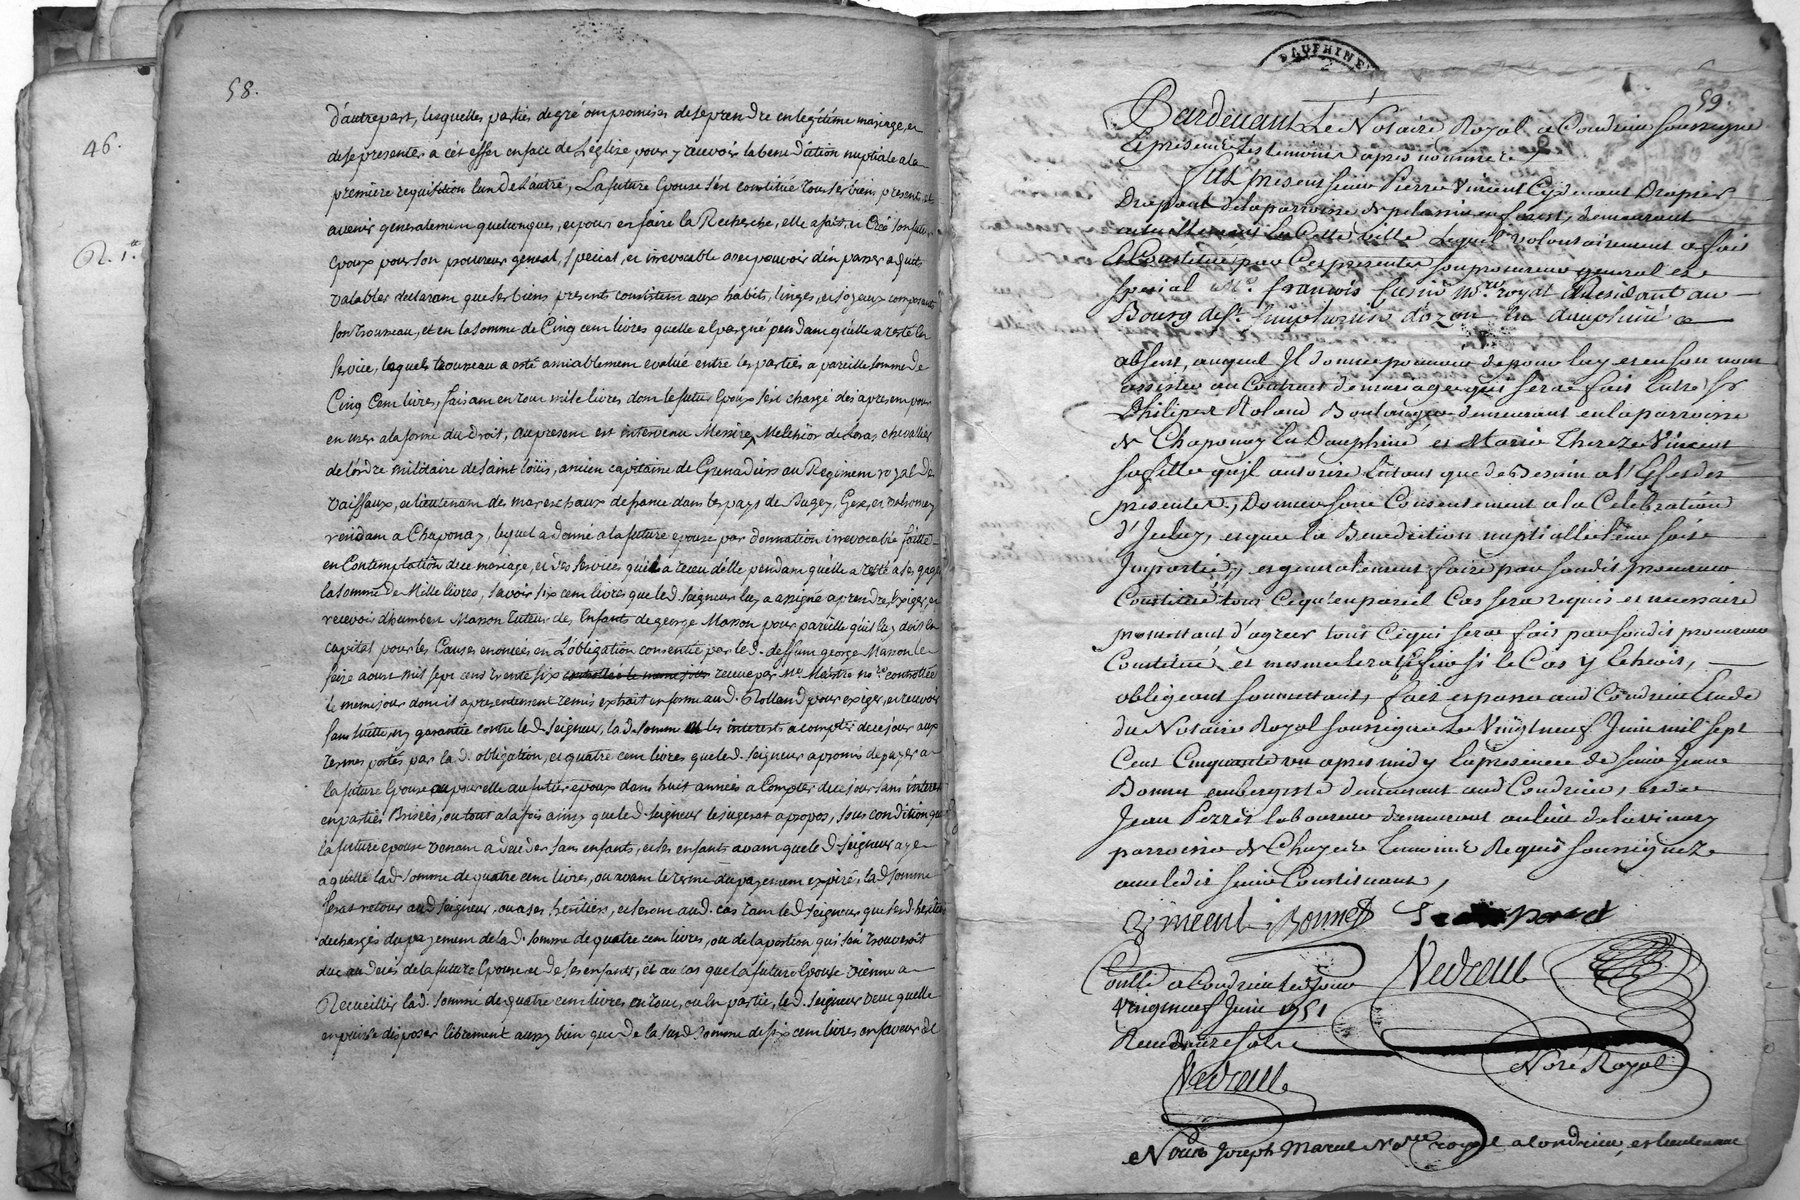 46.
R. 1.re
58.
d'autrepart, lesquelles parties degré ont promises de se prendre en legitime mariage, et
de se presenter a cet effet en face de L'eglise pour y recevoir la benediction nuptiale a la
premiere requisition l'un de l'autre, La future Epouse s'est constituée tous ses biens presents et
avenir generalement quelconques, et pour en faire la Recherche, elle a fait, et Créé son futur
Epoux pour son procureur general, special, et irrevocable avec pouvoir d'en passer acquits
valables declarant que ses biens presents consistent aux habits, linges, et joyeux composants
son trousseau, et en la somme de Cinq cent livres quelle a epargné pendant qu'elle a resté en
service, lequels trousseau a eté amiablement evalué entre les parties a pareille somme de
Cinq Cent livres, faisant en tout mille livres dont le futur Epoux s'est chargé dés apresent pour
en user a la forme du droit, au present est intervenu Messire Melchior de chevallier
de l'ordre militaire de Saint Loüis, ancien capitaine de Grenadiers au Regiment royal de
vaissaux, et lieutenant de mareschaux de france dans les pays de Bugey, Gex, et valromey
residant a Chaponay, lequel a donné a la future epouse par donnation irrevocable faitte
en Contemplation de ce mariage, et des services qu'il a receu d'elle pendant qu'elle a resté a ses gages
la somme de Mille livres, sçavoir six cent livres que led. seigneur luy a assigné a prendre, exiger, et
recevoir d'humbert Masson tuteur des Enfants de george Masson pour pareille qu'il luy doit en
capital pour les Causes enoncées en L'obligation consentie par led. deffunt george Masson le
seize aoust mil sept cent trente six controllée le meme jour receue par Me. Mastre nore. controllée
le meme jour dont il a presentement remis extrait en forme aud. Rolland pour exiger, et recevoir
sans garantie contre led. seigneur, lad. somme et les interests a compter de ce jour aux
termes portés par lad. obligation, et quatre cent livres que led. seigneur a promis de payer a
la future Epouse ou pour elle au futur epoux dans huit années a Compter de ce jour sans interest
en parties Brisées, ou tout a la fois ainsy que led. seigneur le jugerat a propos, sous condition que
la future epouse venant a deceder sans enfants, et ses enfants avant que led. seigneur aye
aquitté lad. somme de quatre cent livres, ou avant le terme du payement expiré, lad. somme
ferat retour aud. seigneur, ou a ses heritiers, et seront aud. cas tant led. seigneur que sesd. heritiers
dechargés du payement de lad. somme de quatre cent livres, ou de la portion qui s'en trouveroit
due au deces de la future Epouse et de ses enfants, et au cas que la future Epouse vienne a
Recueillir lad. somme de quatre cent livres en tout, ou en partie, led. seigneur veut quelle
en puisse disposer librement aussy bien que de la susd. somme de six cent livres en faveur de
DAUPHINÉ
59.
Pardevant Le Notaire Royal a Condrieu soussigné
Et presents les temoins apres nommés
Fut present sieur Pierre Vincent Drapier
Drapant de la parroisse de pelussin en forest, demeurant
actuellement en Cette ville Lequel volontairement a fait
et Constitué par Ces presentes son procureur general et
special Me. françois nore. royal Residant au
Bourg de St. simphorien dozon en dauphiné
absent, auquel Il donne pouvoir de pour luy et en son nom
assister au Contract de mariage qui sera fait Entre sr
Philipes Roland Boulanger demeurant en la parroisse
de Chaponay En Dauphiné, et Marie Thereze Vincent
sa fille qu'il autorise Entant que de Besoin a l'Effet des
presentes, Donner son Consentement a la Celebration
d'Iceluy, et que la Benediction nuptialle leur soit
Impartie, et generalement faire par sondit procureur
Constitué tous Ce qu'en pareil Cas sera requis et necessaire
promettant d'agreer tout Ce qui sera fait par sondit procureur
Constitué, et mesme le ratiffier si le Cas y Echeoit,
obligeant soumettant, fait et passé aud Condrieu Etude
du Notaire Royal soussigné Le Vingt neuf Juin mil sept
Cent Cinquante un apres midy En presence de sieur Jean
Bonnet aubergiste demeurant aud Condrieu, et de
Jean Perret laboureur demeurant au lieu de la vinary
parroisse de Chuyer Temoins Requis soussignez
avec ledit sieur Constituant,
Vincent Bonnet
Conllé a Condrieu led jour
Vingt neuf Juin 1751
Nore Royal
Nous Joseph Marie Nore. royal a Condrieu, et lieutenant